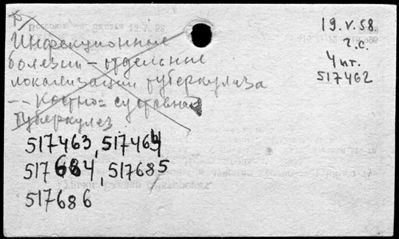 Инфекционные
болезни - отдельные
локализации туберкулеза
-- Костно-суставный
туберкулез
517463, 517464
517684, 517685
517686
19.V.58.
г.с.
4 шт.
517462